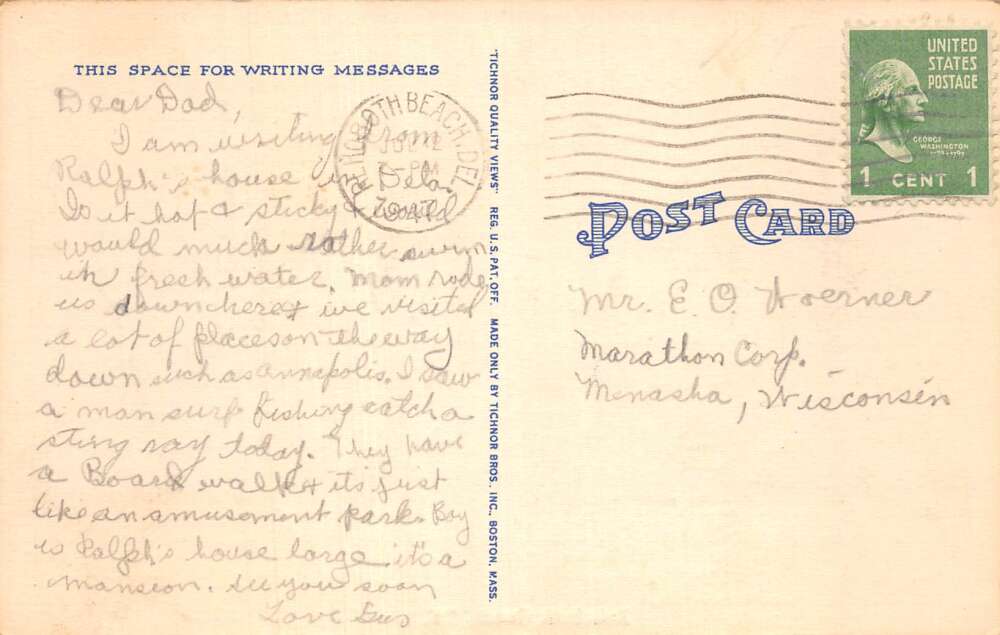 THIS SPACE FOR WRITING MESSAGES
Dear Dad,
I am writing from
Ralph's house in Dela.
Is it hot & sticky & would
would much rather swim
in fresh water. Mom rode
us down here & we visited
a lot of places on the way
down such as Annapolis. I saw
a man surf fishing catch a
sting ray today. They have
a Board walk & its just
like an amusement park. Boy
is Ralph's house large it's a
mansion. See you soon
Love Gus
REHOBOTH BEACH, DEL.
12
PM
1947
"TICHNOR QUALITY VIEWS" REG. U. S. PAT. OFF. MADE ONLY BY TICHNOR BROS., INC., BOSTON, MASS.
UNITED
STATES
POSTAGE
GEORGE
WASHINGTON
1 CENT 1
POST CARD
Mr. E. O. Hoerner
Marathon Corp.
Menasha, Wisconsin